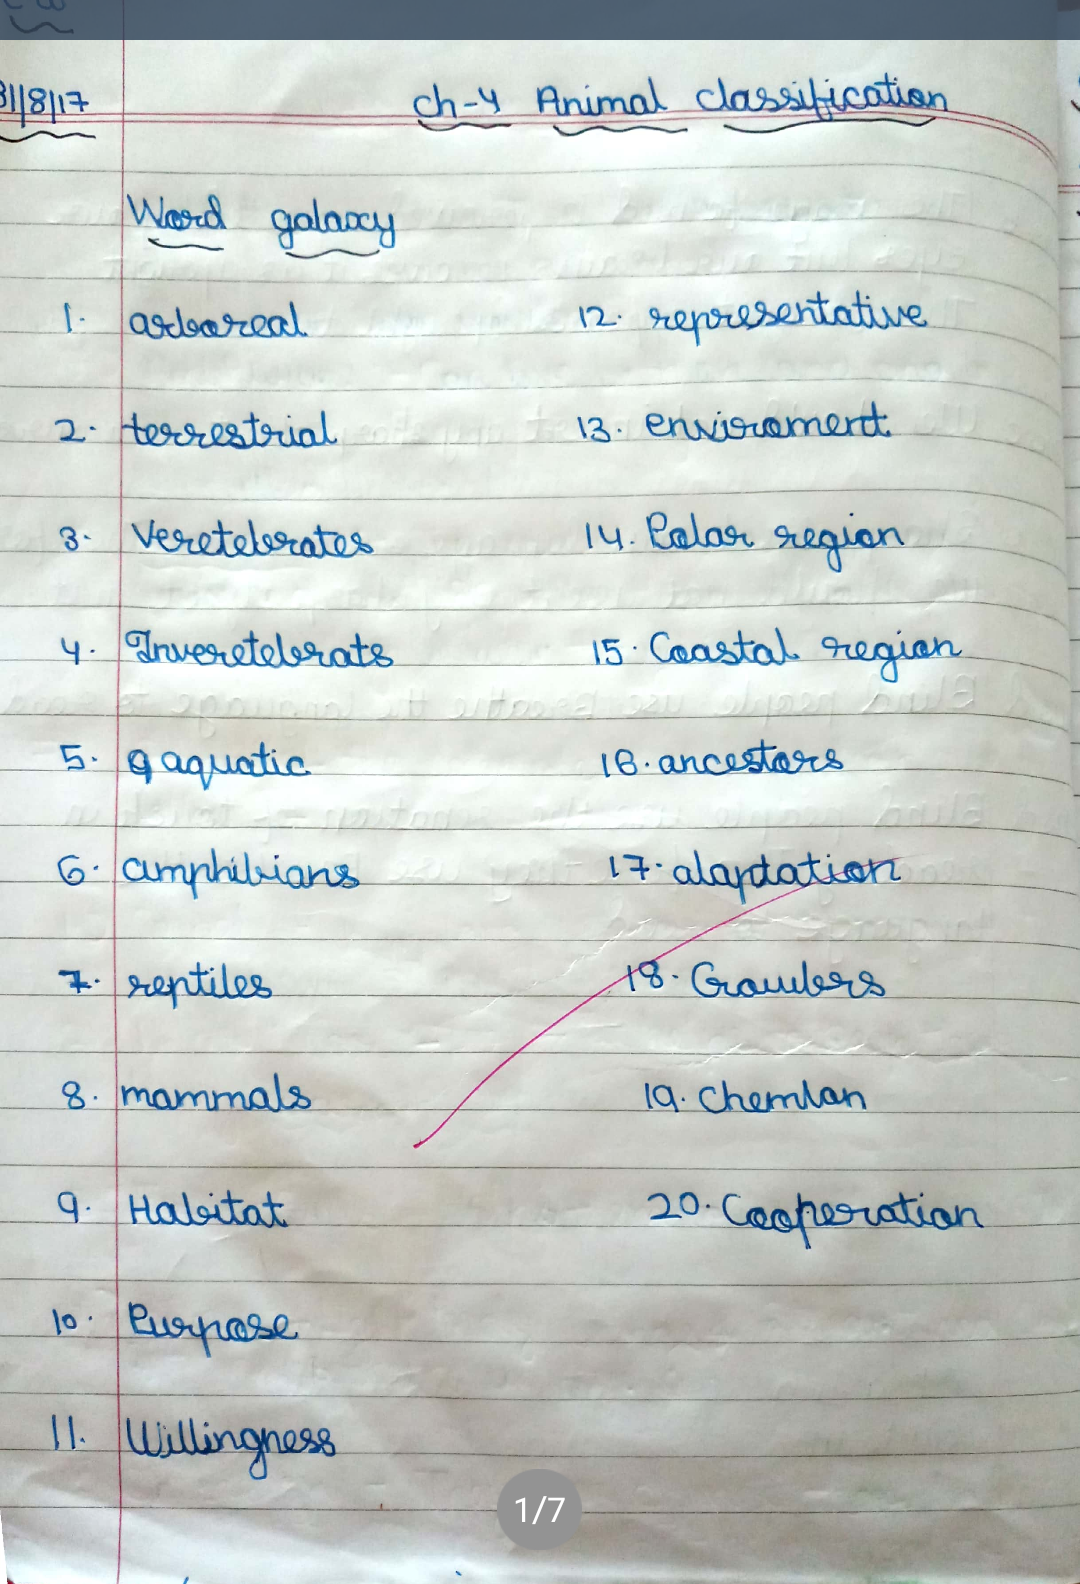 31/8/17
Ch-4 Animal classification
Word galaxy
1. arboreal
2. terrestrial
3. Veretebrates
4. Inveretebrats
5. aquatic
6. amphibians
7. reptiles
8. mammals
9. Habitat
10. Purpose
11. Willingness
12. representative
13. enviroment
14. Polar region
15. Coastal region
16. ancestors
17. alaptation
18.
19.
20. Cooperation
1/7